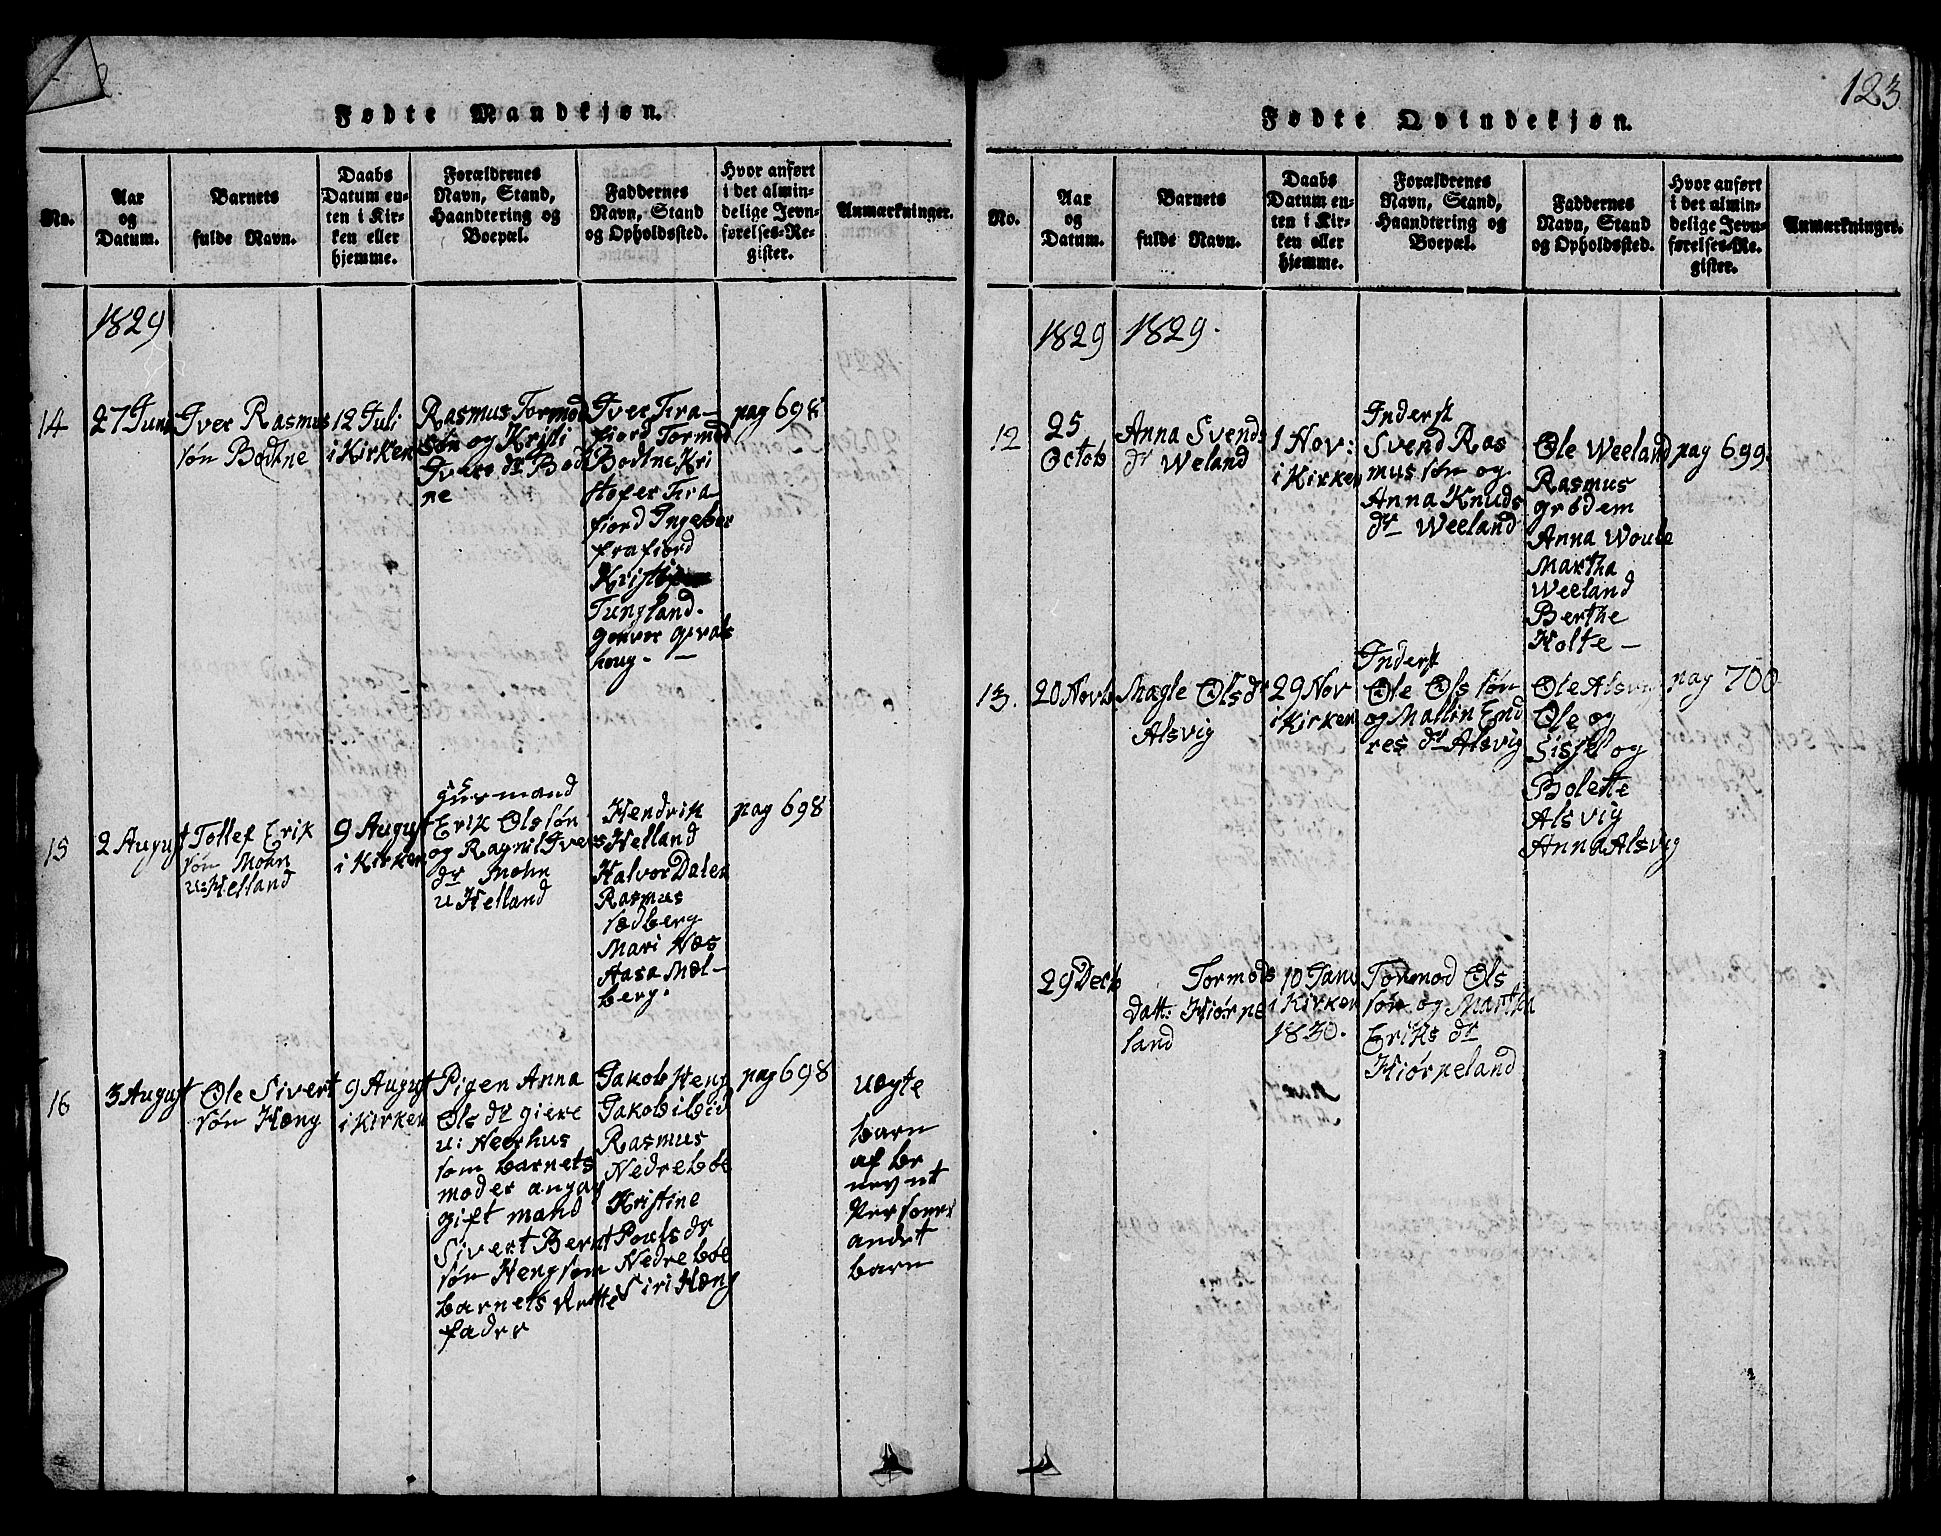 Fødte Mandkjøn.
No.
Aar
og
Datum.
Barnets
fulde Navn.
Daabs
Datum en-
ten i Kir-
ken eller
hjemme.
Forældrenes
Navn, Stand,
Haandtering og
Boepæl.
Faddernes
Navn, Stand
og Opholdssted.
Hvor anført
i det almin-
delige Jevn-
førelses-Re-
gister.
Anmærkninger.
1829
14
27 Juni
Iver Rasmus
søn Bodtne
12 Juli
i Kirken
Rasmus Tormod
søn og Kristi
Ivers dr Bod
ne
Iver Fra-
fiord Tormod
Bodtne Kri
stofer Fra-
fiord Ingeber
frafiord
Tungland.
houg. -
pag 698
15
2 August
Tollef Erik
søn Mohn
u: Helland
9 August
i Kirken
Husmand
Erik Olssøn
og Ragnil Ivers
dr Mohn
u Helland
Hendrik
Helland
Halvor Dalen
Rasmus
sædberg
Mari Næs
Aasa Mæl-
berg.
pag 698
16
3 August
Ole Sivert
søn Hæng
9 August
i Kirken
Pigen Anna
Ols dr giere
u: Neerhus
som barnets
moder angav
gift mand
Sivert Bernt
søn Heng som
barnets Rette
fader
Jakob Heng
Jakob ibid
Rasmus
Nedrebøe
Kristine
Pouls dr
Nedrebøe
Siri Hæng
pag 698
Uægte
barn
af be
nevnt
Personer
andet
barn
123
Fødte Qvindekjøn.
No.
Aar
og
Datum.
Barnets
fulde Navn.
Daabs
Datum en-
ten i Kir-
ken eller
hjemme.
Forældrenes
Navn, Stand,
Haandtering og
Boepæl.
Faddernes
Navn, Stand
og Opholdssted.
Hvor anført
i det almin-
delige Jevn-
førelses-Re-
gister.
Anmærkninger.
1829
1829.
12
25
Octob
Anna Svends
dr Weland
1 Nov:
i Kirken
Inderst
Svend Ras
mus søn og
Anna Knuds
dr Weeland
Ole Weeland
Rasmus
grødem
Anna Woule
Martha
Weeland
Berthe
Holte -
pag 699.
13.
20 Novb
Magle Olsdr
Alsvig
29 Nov
i Kirken
Inderst
Ole Ols søn
og Mallin End
res dr Alsvig
Ole Alsvig
Ole og
Sisel og
Bolette
Alsvig
Anna Alsvig
pag 700
29 Decb
Tormods
datt: Hiørpe
land
10 Janu
i Kirken
1830.
Tormod Ols
søn og Martha
Eriks dr
Hiørpeland